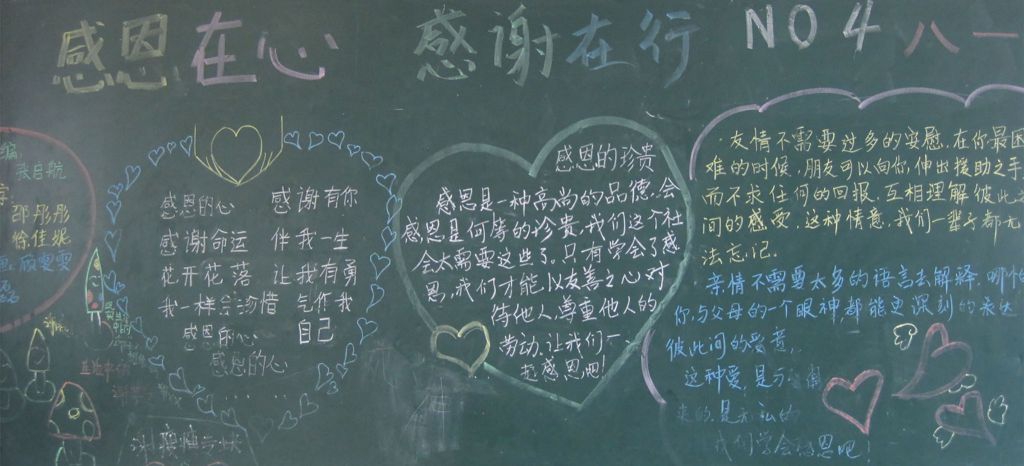 感恩在心 感谢在行 NO4 八一
编
张自航
字
邵彤彤
徐佳妮
雯雯
感恩的心 感谢有你
感谢命运 伴我一生
花开花落 让我有勇
我一样 珍惜 气作我
感恩的心 自己
感恩的心
... ...
感恩的珍贵
感恩是一种高尚的品德,会
感恩是何等的珍贵,我们这个社
会太需要这些了。只有学会了感
恩,我们才能以友善之心对
待他人,尊重他人的
劳动,让我们一
起感恩吧!
友情不需要过多的安慰,在你最困
难的时候,朋友可以向你伸出援助之手
而不求任何的回报,互相理解彼此之
间的感受,这种情意,我们一辈子都无
法忘记。
亲情不需要太多的语言去解释,哪怕
你与父母的一个眼神,都能更深刻的表达
彼此间的爱意,
这种爱,是
来的,是 私的
我们学会感恩吧!